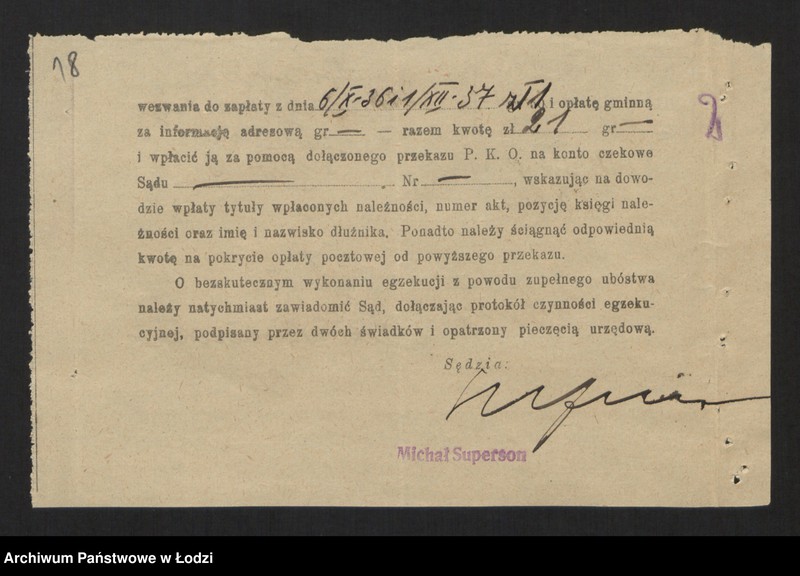 18
wezwania do zapłaty z dnia 6/X-36 i 1/XII-37 zł 1 i opłatę gminną
za informację adresową gr — — razem kwotę zł 21 gr —
i wpłacić ją za pomocą dołączonego przekazu P. K. O. na konto czekowe
Sądu — . Nr — , wskazując na dowo-
dzie wpłaty tytuły wpłaconych należności, numer akt, pozycję księgi nale-
żności oraz imię i nazwisko dłużnika. Ponadto należy ściągnąć odpowiednią
kwotę na pokrycie opłaty pocztowej od powyższego przekazu.
O bezskutecznym wykonaniu egzekucji z powodu zupełnego ubóstwa
należy natychmiast zawiadomić Sąd, dołączając protokół czynności egzeku-
cyjnej, podpisany przez dwóch świadków i opatrzony pieczęcią urzędową.
Sędzia:
Michał Superson
Archiwum Państwowe w Łodzi